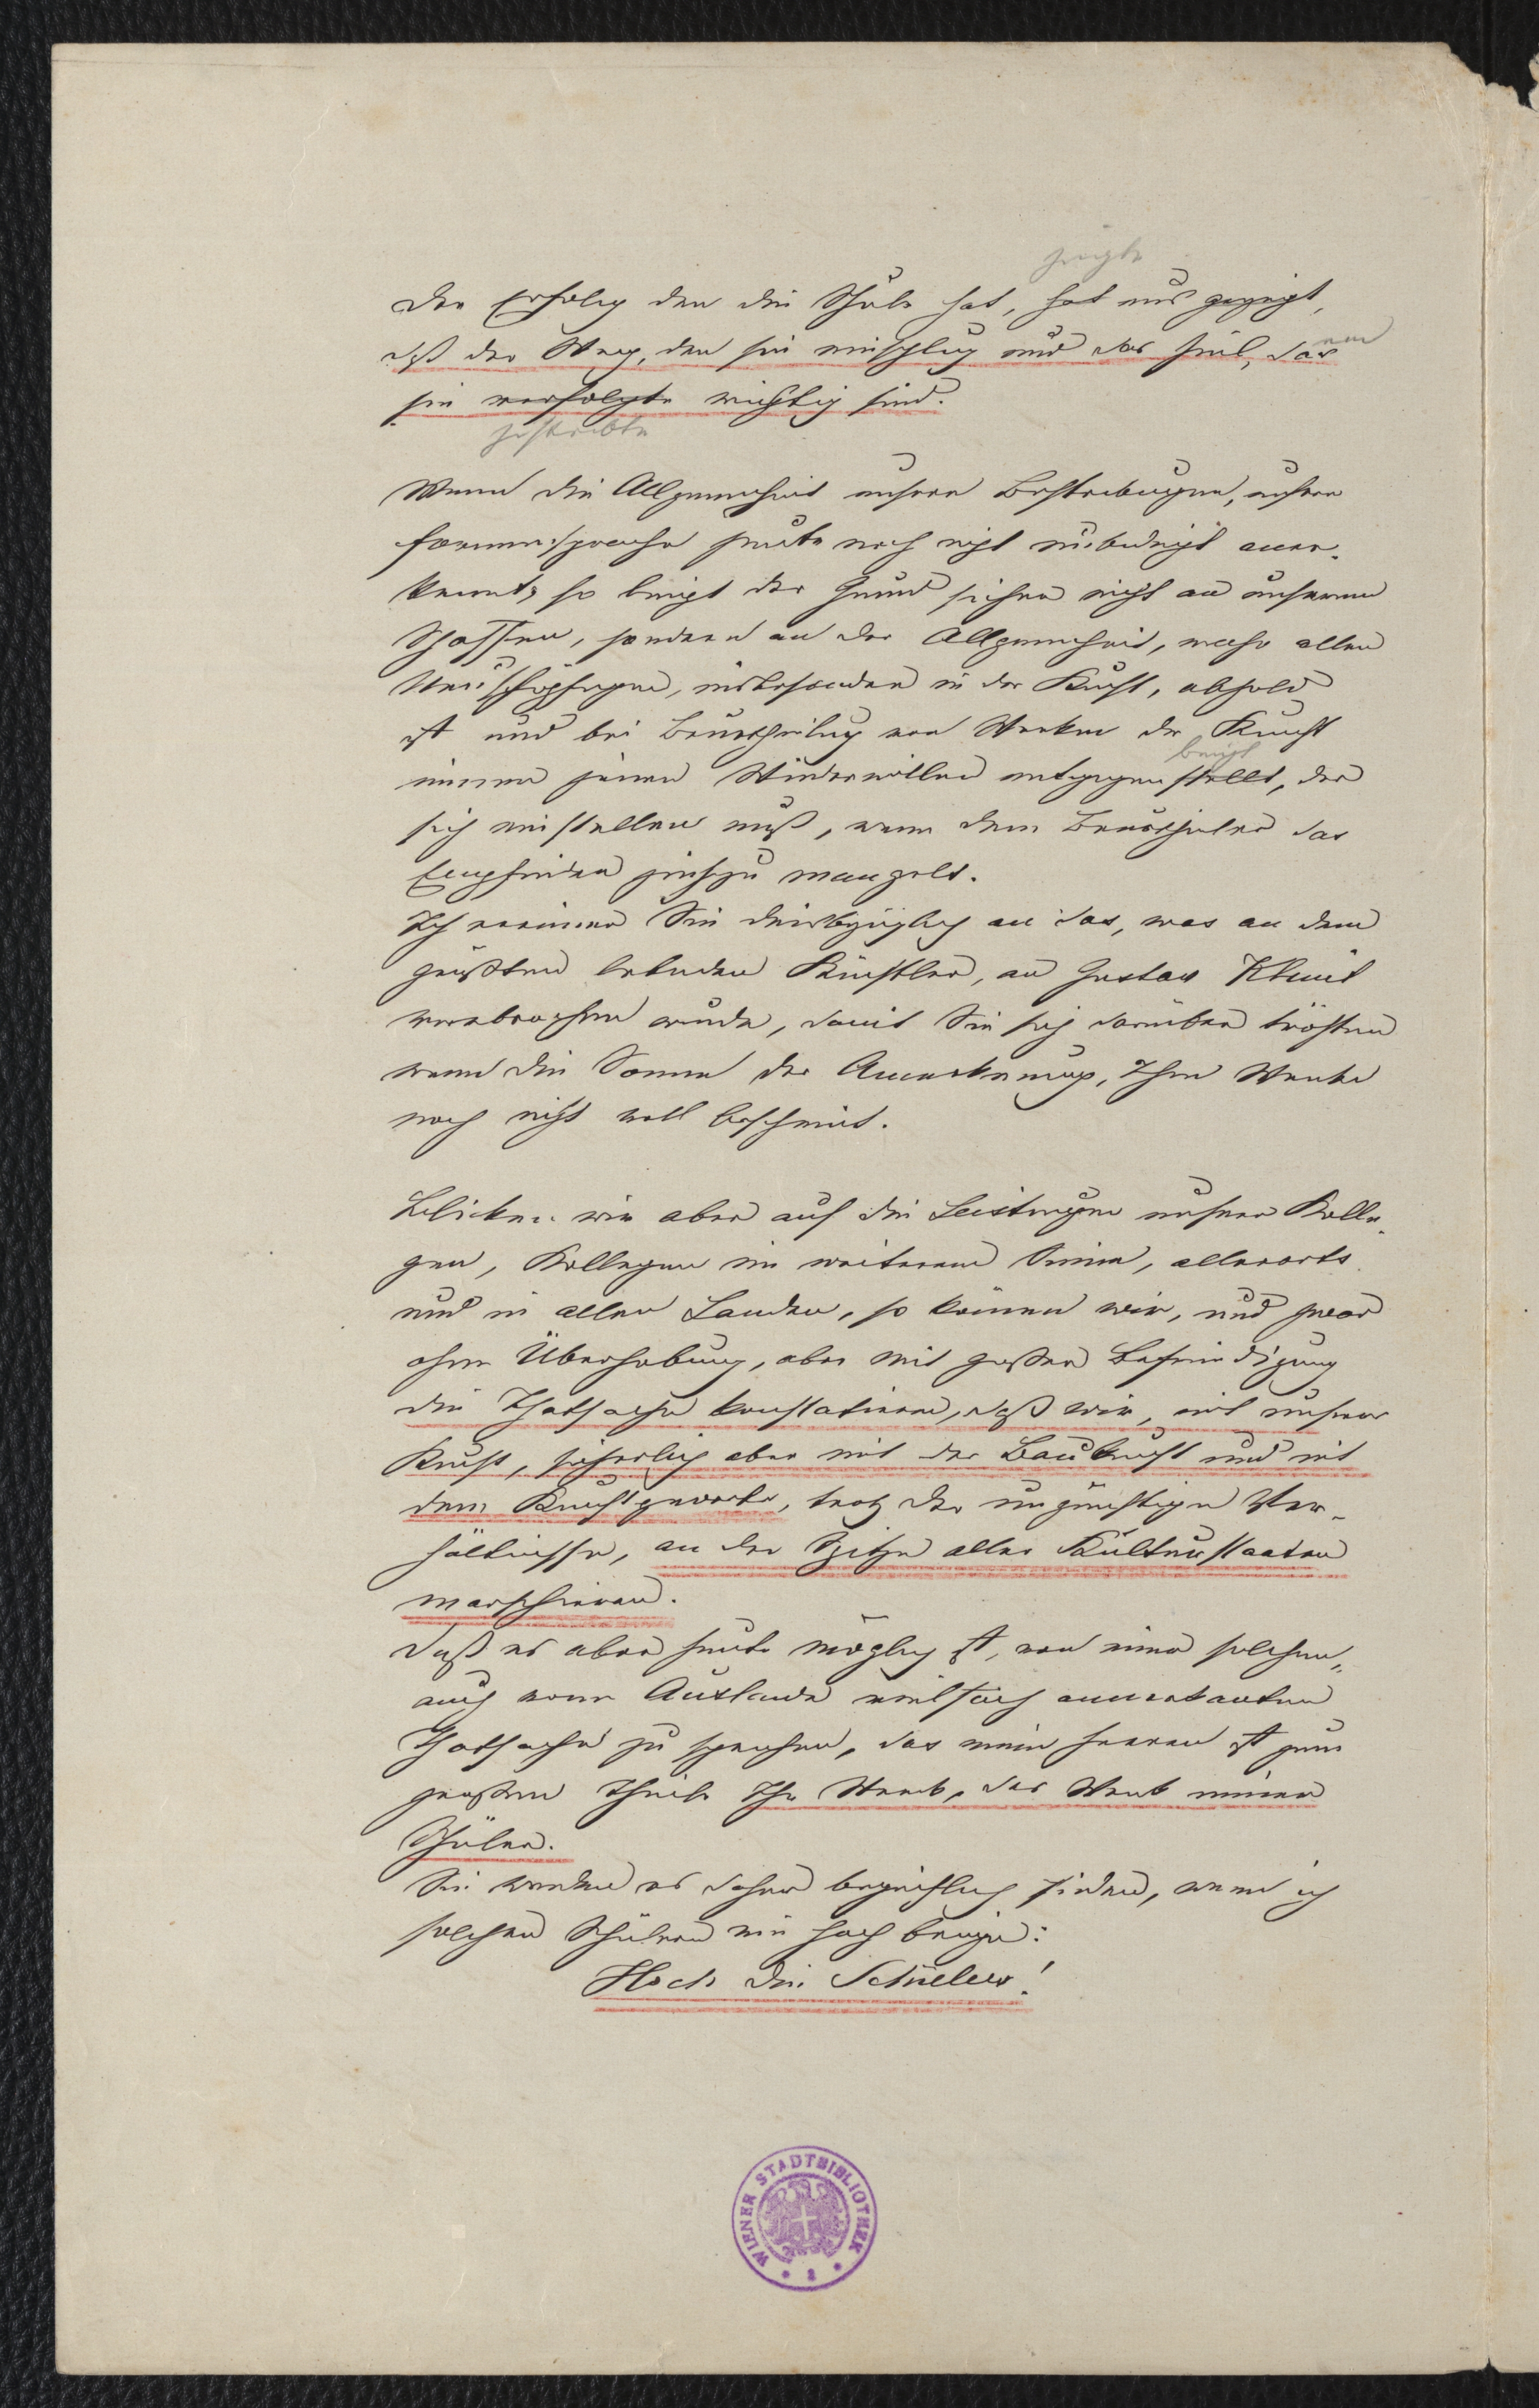 zeigte
Der Erfolg den die Schule hat, hat uns gezeigt,
daß der Weg, den sie einschlug und das Ziel, das
sie verfolgte richtig sind.
erstrebte
Wenn die Allgemeinheit unsere Bestrebungen, unsere
Formensprache heute noch nicht unbedingt aner-
kennt, so liegt der Grund sicher nicht an unserem
Schaffen, sondern an der Allgemeinheit, welche allen
Neuschöpfungen, insbesondere in der Kunst, abhold
ist und bei Beurtheilung von Werken der Kunst
bringt
immer jenen Widerwillen entgegenstellt, der
sich einstellen muß, wenn dem Beurtheiler das
Empfinden hiezu mangelt.
Ich erinnere Sie diesbezüglich an das, was an dem
größten lebenden Künstler, an Gustav Klimt
verbrochen wurde, damit Sie sich darüber trösten
wenn die Sonne der Anerkennung, Ihre Werke
noch nicht voll bescheint.
Blicken wir aber auf die Leistungen unserer Kolle-
gen, Kollegen im weiteren Sinne, allerorts
und in allen Landen, so können wir, und zwar
ohne Überhebung, aber mit großer Befriedigung
die Thatsache konstatieren, daß wir, mit unserer
Kunst, sicherlich aber mit der Baukunst und mit
dem Kunstgewerbe, trotz der ungünstigen Ver-
hältnisse, an der Spitze aller Kulturstaaten
marschieren.
Daß es aber heute möglich ist, von einer solchen,
auch vom Auslande vielfach anerkannten
Thatsache zu sprechen, das meine Herren ist zum
großen Theile Ihr Werk, das Werk meiner
Schüler.
Sie werden es daher begreiflich finden, wenn ich
solchen Schülern ein Hoch bringe:
Hoch die Schüler!
WIENER STADTBIBLIOTHEK